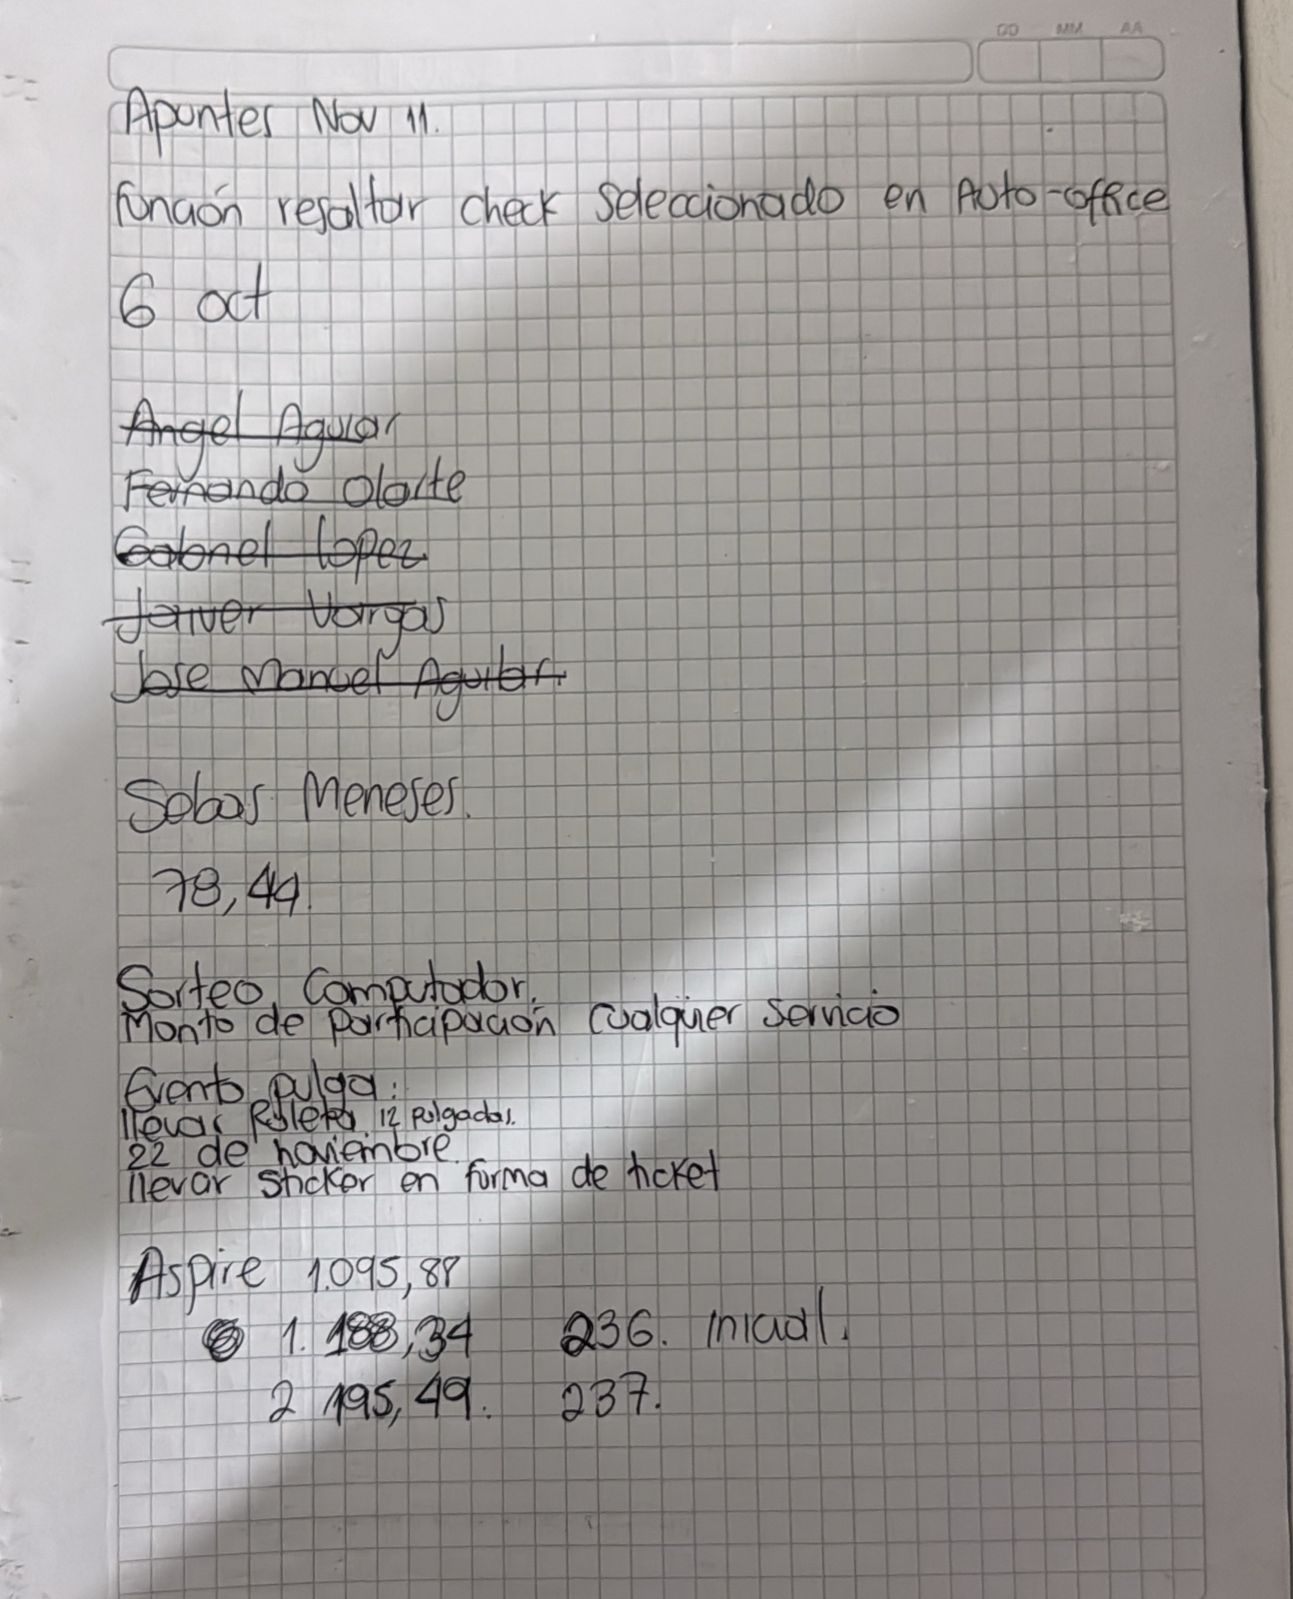 DD MM AA
Apuntes Nov 11.
función resaltar check seleccionado en Auto-office
6 oct
Angel Aguiar
Fernando Olarte
Gabriel Lopez
Javier Vargas
Jose Manuel Aguilar.
Sebas Meneses.
78,49.
Sorteo Computador.
Monto de participación cualquier servicio
Evento pulga:
llevar Ruleta 12 pulgadas.
22 de noviembre.
llevar sticker en forma de ticket
Aspire 1.095,88
1. 188,34 236. inicial.
2 195,49. 237.